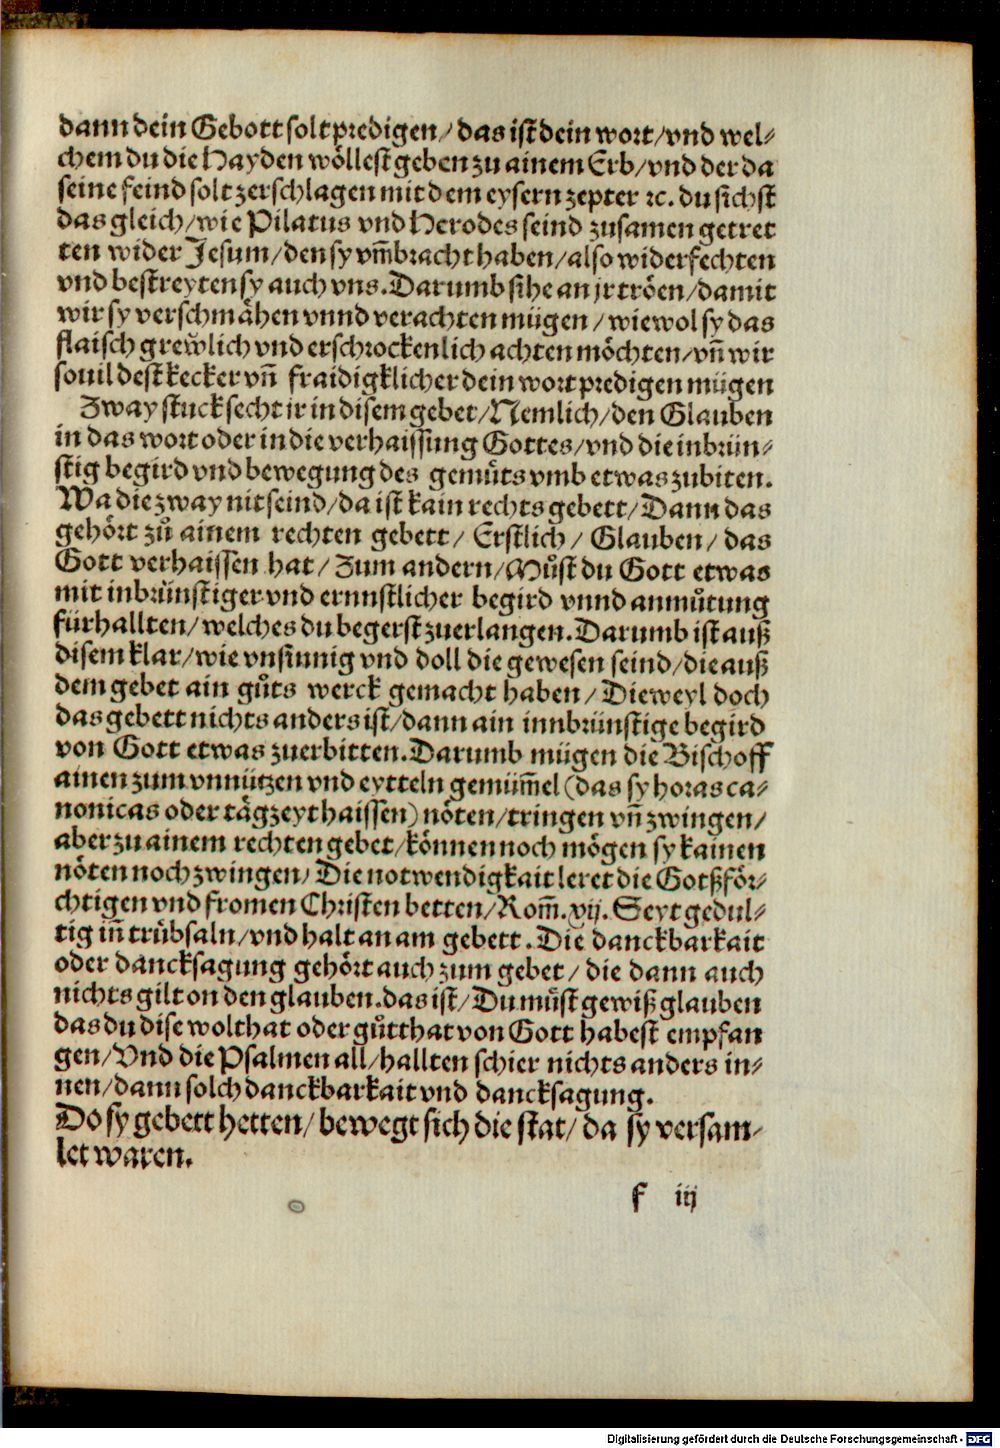 dann dein Gebott solt predigen/ das ist dein wort/ vnd wel⸗
chem du die Hayden wöllest geben zu ainem Erb/ vnd der da
seine feind solt zerschlagen mit dem eysern zepter ꝛc. du sichst
das gleich/ wie Pilatus vnd Herodes seind zusamen getret
ten wider Jesum/ den sy vm̄bracht haben/ also widerfechten
vnd bestreyten sy auch vns. Darumb sihe an jr tröen/ damit
wir sy verschmähen vnnd verachten mügen/ wiewol sy das
flaisch grewlich vnd erschrockenlich achten möchten/ vn̄ wir
souil dest kecker vn̄ fraidigklicher dein wort predigen mügen
Zway stuck secht ir in disem gebet/ Nemlich/ den Glauben
in das wort oder in die verhaissung Gottes/ vnd die inbrün⸗
stig begird vnd bewegung des gemuͤts vmb etwas zubiten.
Wa die zway nit seind/ da ist kain rechts gebett/ Dann das
gehört zuͦ ainem rechten gebett/ Erstlich/ Glauben/ das
Gott verhaissen hat/ Zum andern/ Muͦst du Gott etwas
mit inbrünstiger vnd ernnstlicher begird vnnd anmuͤtung
fürhallten/ welches du begerst zuerlangen. Darumb ist auß
disem klar/ wie vnsinnig vnd doll die gewesen seind/ die auß
dem gebet ain guͦts werck gemacht haben/ Dieweyl doch
das gebett nichts anders ist/ dann ain innbrünstige begird
von Gott etwas zuerbitten. Darumb mügen die Bischoff
ainen zum vnnützen vnd eytteln gemüm̄el (das sy horas ca⸗
nonicas oder tägzeyt haissen) nöten/ tringen vn̄ zwingen/
aber zu ainem rechten gebet/ können noch mögen sy kainen
nöten noch zwingen/ Die notwendigkait leret die Gotßför⸗
chtigen vnd fromen Christen betten/ Rom̄. xij. Seyt gedul⸗
tig in̄ truͤbsaln/ vnd halt an am gebett. Die danckbarkait
oder dancksagung gehört auch zum gebet/ die dann auch
nichts gilt on den glauben. das ist/ Du muͤst gewiß glauben
das du dise wolthat oder guͦtthat von Gott habest empfan
gen/ Vnd die Psalmen all/ hallten schier nichts anders in⸗
nen/ dann solch danckbarkait vnd dancksagung.
Do sy gebett hetten/ bewegt sich die stat/ da sy versam⸗
let waren.
f iij
Digitalisierung gefördert durch die Deutsche Forschungsgemeinschaft - DFG